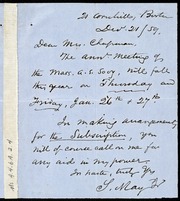 21 Cornhill, Boston
Dec. 21/59.
Dear Mrs. Chapman,
The Annl. Meeting of
the Mass. A. S. Socy. will fall
this year on Thursday and
Friday, Jan. 26 & 27th
In making arrangements
for the Subscription, you
will of course call on me for
any aid in my power.
In haste, truly Yrs
S. May Jr.